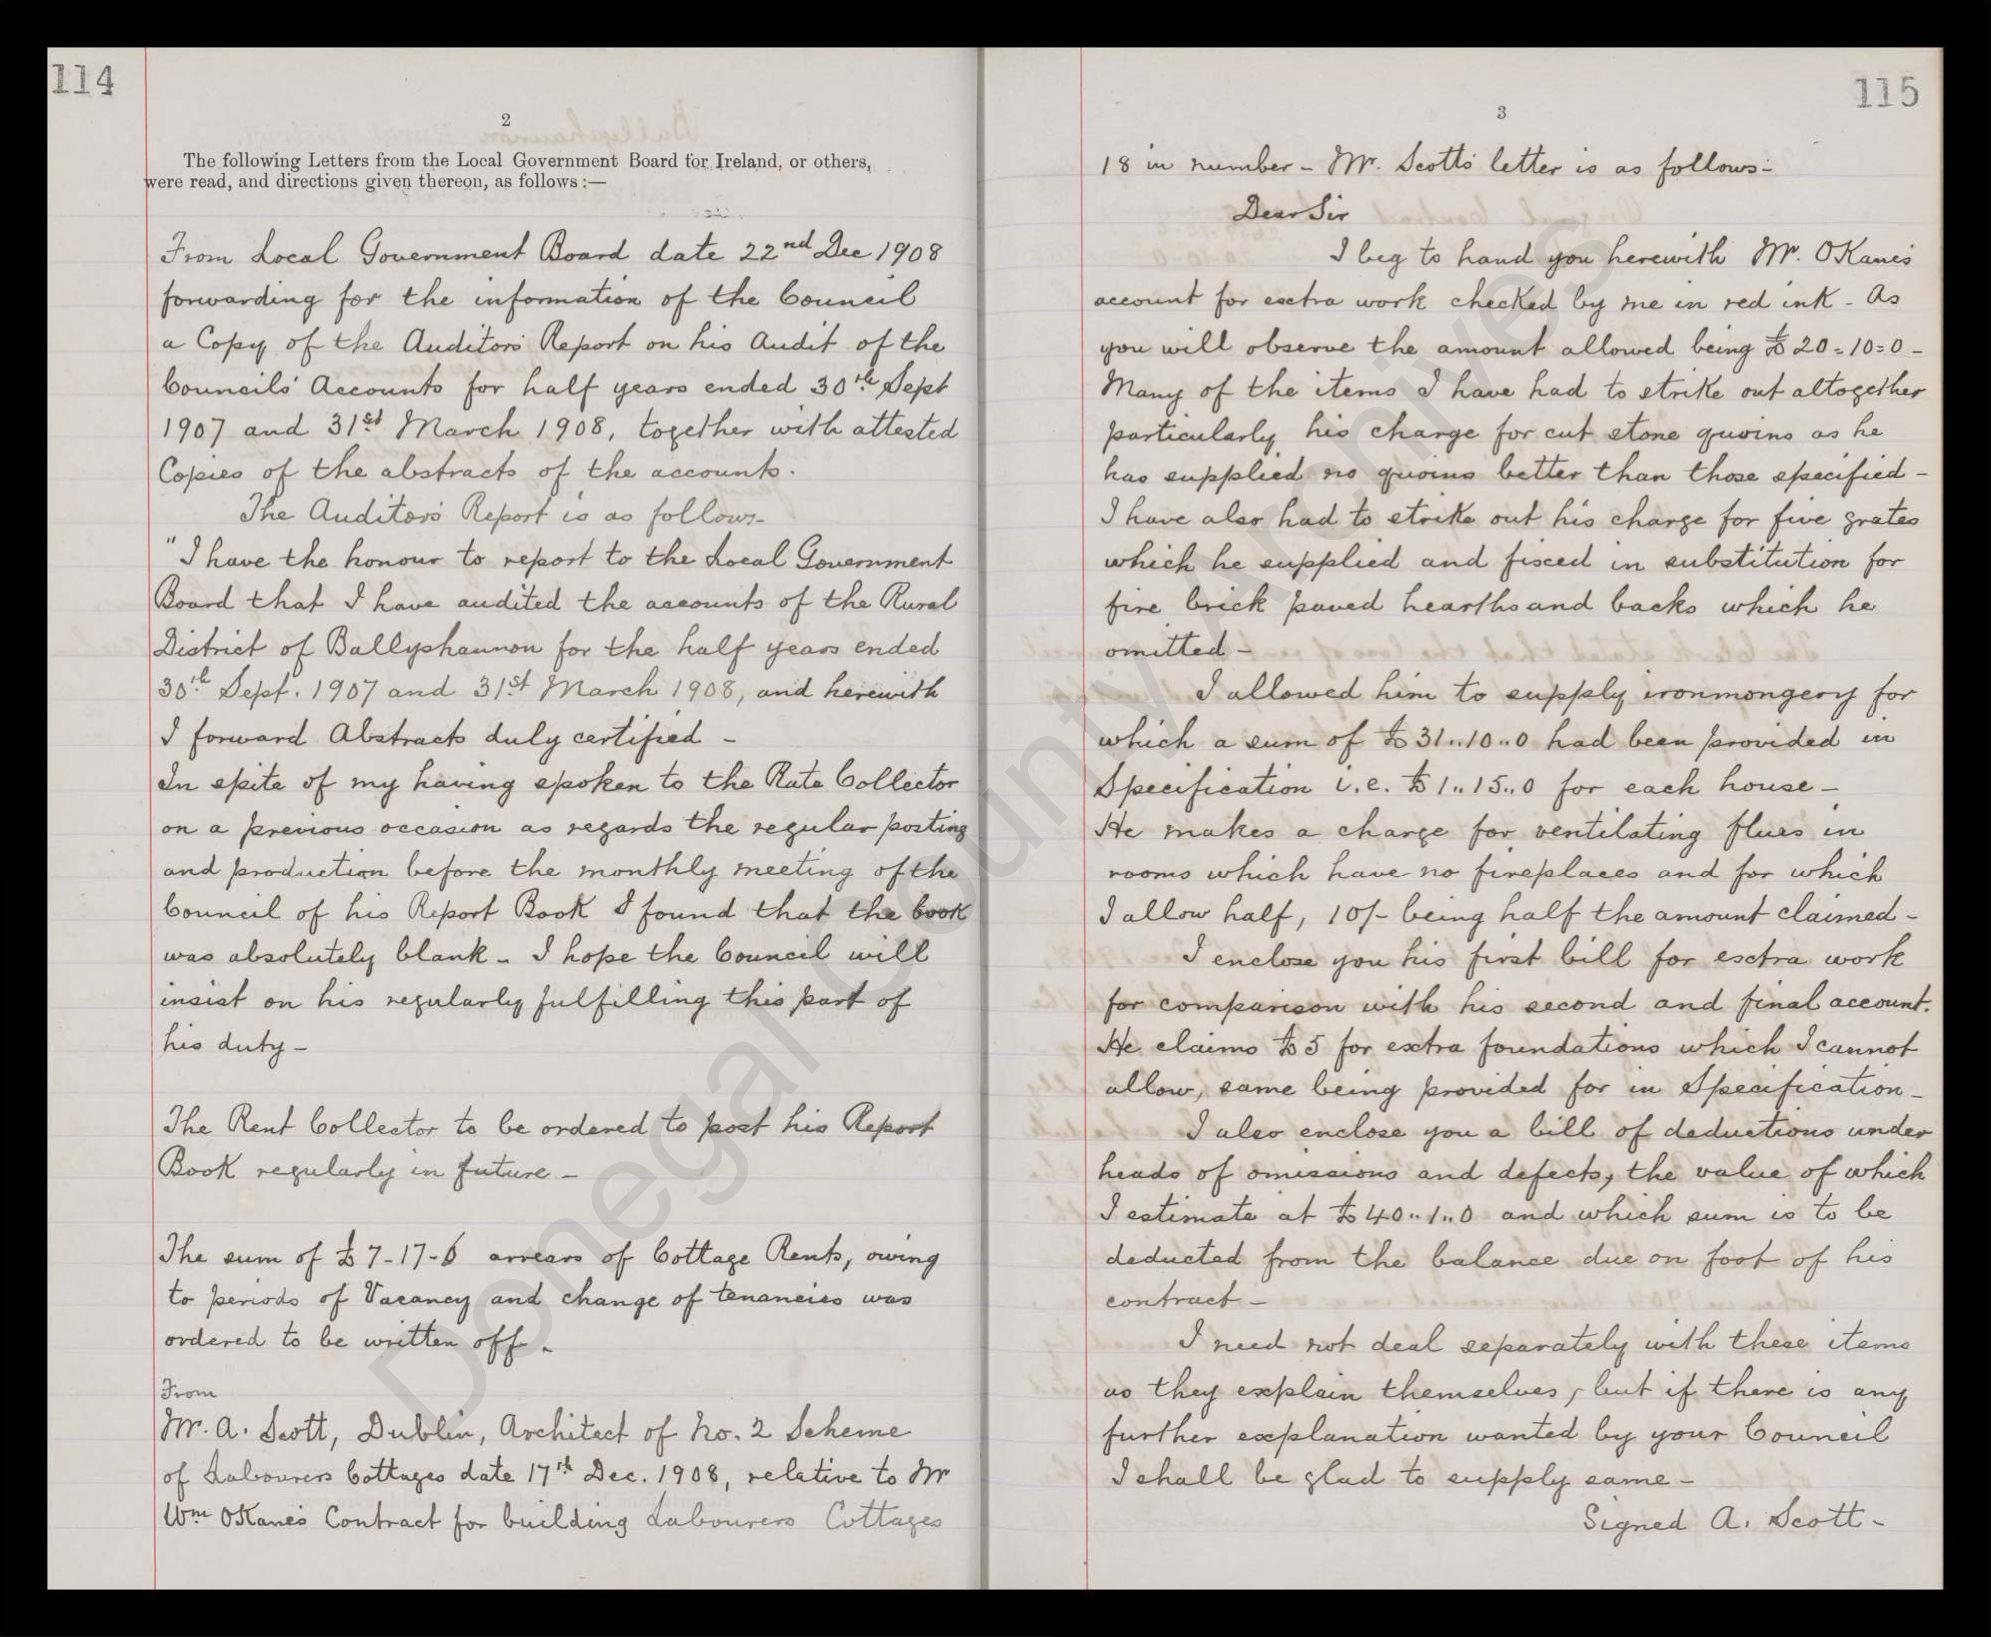 114
2
The following Letters from the Local Government Board for Ireland, or others,
were read, and directions given thereon, as follows :—
From Local Government Board date 22nd Dec 1908
forwarding for the information of the Council
a Copy of the Auditors Report on his Audit of the
Councils' Accounts for half years ended 30th Sept
1907 and 31st March 1908, together with attested
Copies of the abstracts of the accounts.
The Auditors Report is as follows-
"I have the honour to report to the Local Government
Board that I have audited the accounts of the Rural
District of Ballyshannon for the half years ended
30th Sept. 1907 and 31st March 1908, and herewith
I forward Abstracts duly certified -
In spite of my having spoken to the Rate Collector
on a previous occasion as regards the regular posting
and production before the monthly meeting of the
Council of his Report Book I found that the book
was absolutely blank - I hope the Council will
insist on his regularly fulfilling this part of
his duty -
The Rent Collector to be ordered to post his Report
Book regularly in future -
The sum of £7-17-6 arrears of Cottage Rents, owing
to periods of Vacancy and change of tenancies was
ordered to be written off -
From
Mr. A. Scott, Dublin, Architect of No. 2 Scheme
of Labourers Cottages date 17th Dec. 1908, relative to Mr
Wm OKane's Contract for building Labourers Cottages
115
3
18 in number - Mr. Scotts' letter is as follows:-
Dear Sir
I beg to hand you herewith Mr. OKane's
account for extra work checked by me in red ink - As
you will observe the amount allowed being £20-10-0 -
Many of the items I have had to strike out altogether
particularly his charge for cut stone quoins as he
has supplied no quoins better than those specified -
I have also had to strike out his charge for five grates
which he supplied and fixed in substitution for
fire brick paved hearths and backs which he
omitted -
I allowed him to supply ironmongery for
which a sum of £31..10..0 had been provided in
Specification i.e. £1..15..0 for each house -
He makes a charge for ventilating flues in
rooms which have no fireplaces and for which
I allow half, 10/- being half the amount claimed -
I enclose you his first bill for extra work
for comparison with his second and final account.
He claims £5 for extra foundations which I cannot
allow, same being provided for in Specification -
I also enclose you a bill of deductions under
heads of omissions and defects, the value of which
I estimate at £40..1..0 and which sum is to be
deducted from the balance due on foot of his
contract -
I need not deal separately with these items
as they explain themselves, but if there is any
further explanation wanted by your Council
I shall be glad to supply same -
Signed A. Scott -
Donegal County Archives